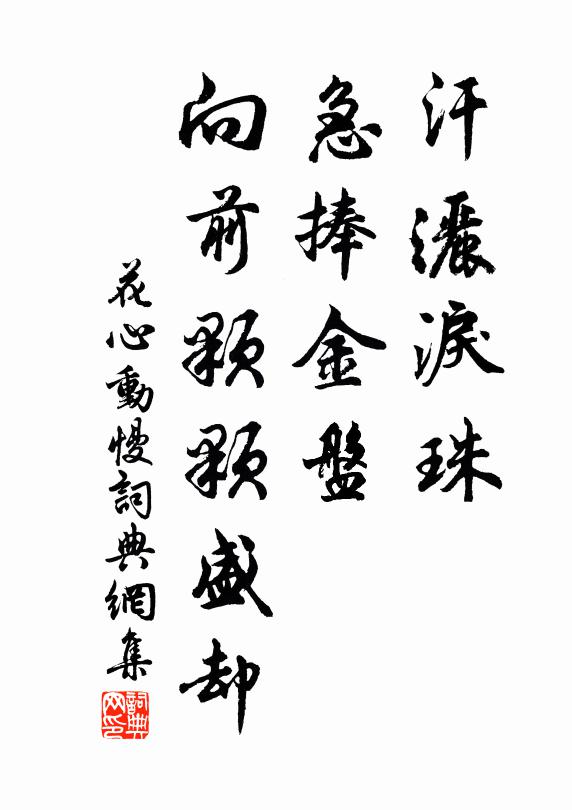 汗灑淚珠
急捧金盤
向前顆顆盛却
花心動慢詞典網集
詞典网印